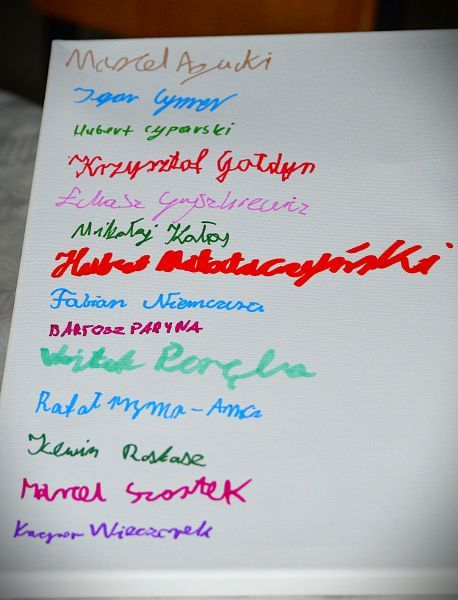 Marcel
Igor Cymer
Hubert Cyparski
Krzysztof Gołdyn
Łukasz Gryszkiewicz
Mikołaj Kałas
Hubert
Fabian Niemczura
BARTOSZ PARYNA
Wojtek Poręba
Rafał
Kewin Roskosz
Marcel Szostek
Kacper Wieczorek